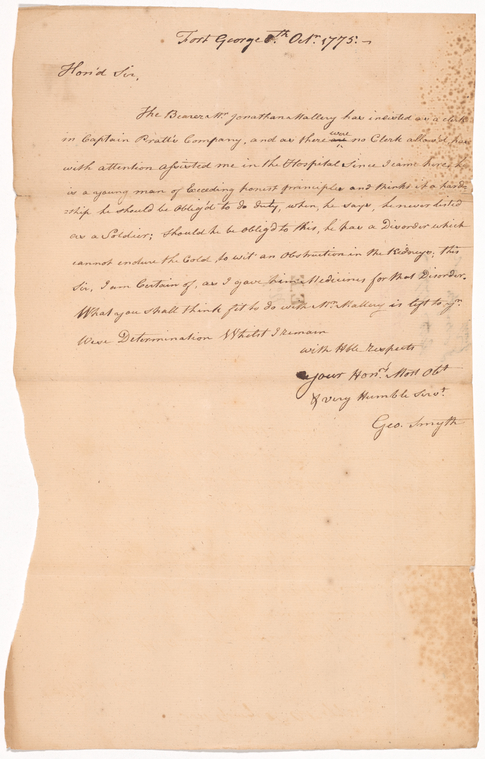 Fort George 8.th Octr. 1775.—
Hon'd Sir,
The Bearer Mr. Jonathan Mallery has inlisted as a Clerk
in Captain Pratt's Company, and as there were no Clerk allow'd, has
with attention assisted me in the Hospital Since I came here, he
is a young man of Exceeding honest principles and thinks it a hard-
ship he should be Oblig'd to do duty, when, he says, he never listed
as a Soldier; should he be oblig'd to this, he has a Disorder which
cannot endure the Cold, to wit an Obstruction in the Kidneys; this
Sir, I am Certain of, as I gave him Medicines for that Disorder.
What you shall think fit to do with Mr. Mallery is left to yr.
Wise Determination Whilst I remain
with Hble respects
Your Honrs. Most Obt.
& very Humble Servt.
Geo. Smyth